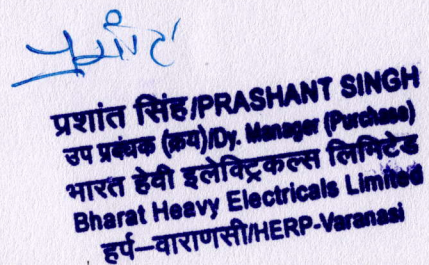 प्रशांत सिंह/PRASHANT SINGH
उप प्रबंधक (क्रय)/Dy. Manager (Purchase)
भारत हेवी इलेक्ट्रिकल्स लिमिटेड
Bharat Heavy Electricals Limited
हर्प–वाराणसी/HERP-Varanasi